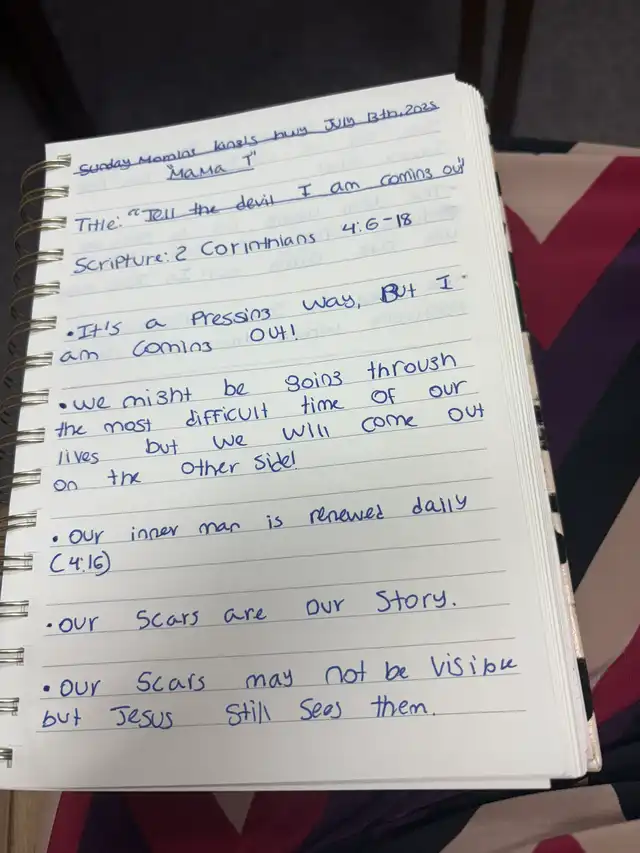 Sunday Morning kings hwy July 13th, 2025
"Mama T"
Title: "Tell the devil I am coming out"
Scripture: 2 Corinthians 4:6-18
• It's a pressing way, But I
am coming out!
• we might be going through
the most difficult time of our
lives but we will come out
on the other side!
• our inner man is renewed daily
(4:16)
• our scars are our story.
• our scars may not be visible
but Jesus still sees them.